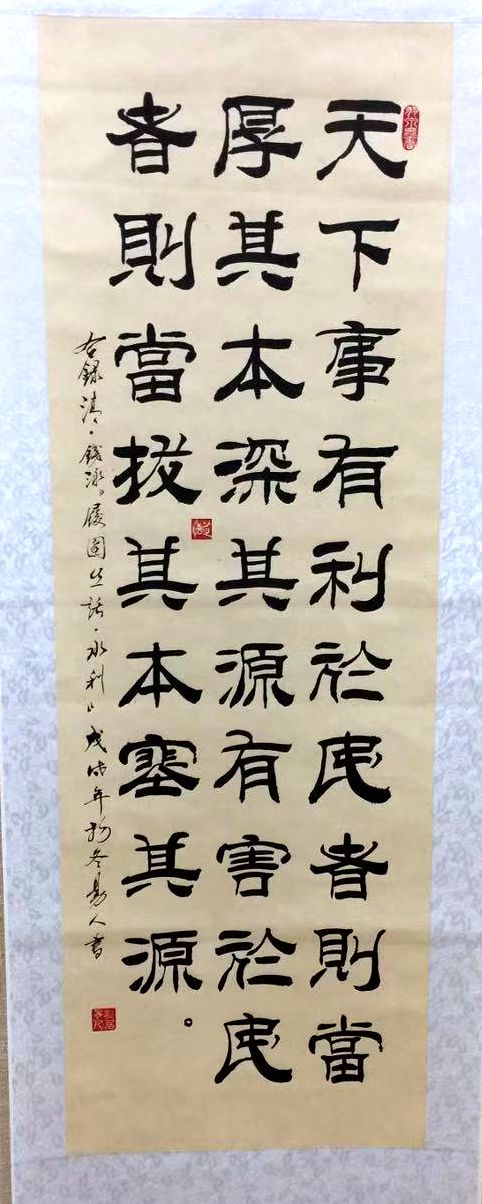 天下事有利於民者則當
厚其本深其源有害於民
者則當拔其本塞其源。
右錄清·錢泳。履園丛話·水利 戊戌年初冬易人書